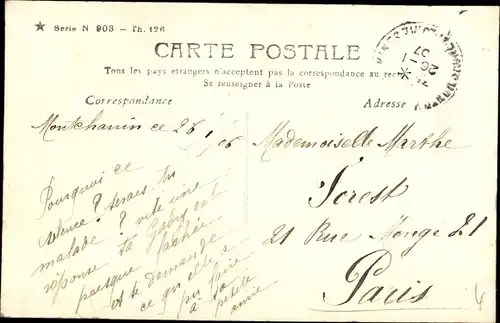 ★ Serie N 903 - Th. 126
CARTE POSTALE
Tous les pays etrangers n'acceptent pas la correspondance au recto
Se renseigner à la Poste
Correspondance
Adresse
Montchanin ce 26/1/06
Pourquoi ce
silence? serais-tu
malade? vite une
réponse ta Gaby est
presque fâchée
et te demande
ce qu'elle a
pu faire
à sa
petite
amie
Mademoiselle Marthe
Forest
21 Rue Monge 21
Paris